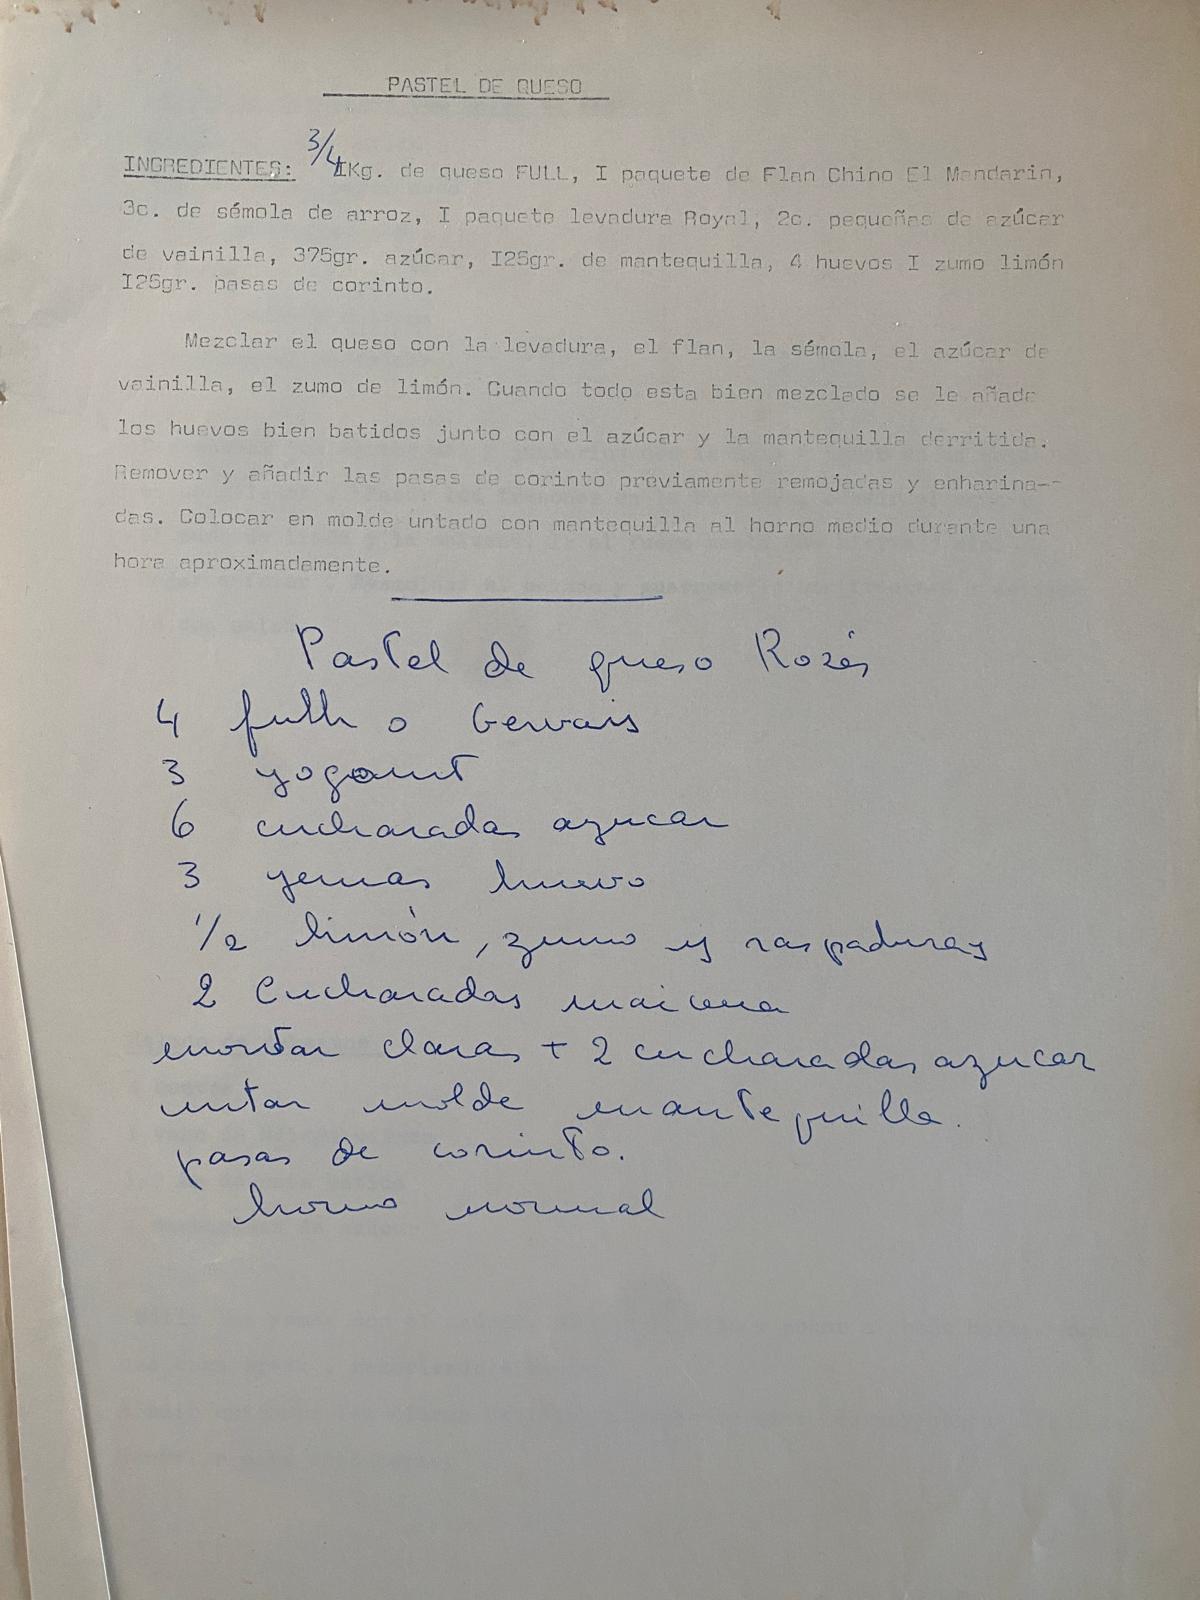 PASTEL DE QUESO
INGREDIENTES: 3/4 IKg. de queso FULL, I paquete de Flan Chino El Mandarin,
3c. de sémola de arroz, I paquete levadura Royal, 2c. pequeñas de azúcar
de vainilla, 375gr. azúcar, I25gr. de mantequilla, 4 huevos I zumo limón
I25gr. pasas de corinto.
Mezclar el queso con la levadura, el flan, la sémola, el azúcar de
vainilla, el zumo de limón. Cuando todo esta bien mezclado se le añade
los huevos bien batidos junto con el azúcar y la mantequilla derritida.
Remover y añadir las pasas de corinto previamente remojadas y enharina--
das. Colocar en molde untado con mantequilla al horno medio durante una
hora aproximadamente.
Pastel de queso Rozés
4 full o Gervais
3 yogourt
6 cucharadas azucar
3 yemas huevo
1/2 limón, zumo y raspaduras
2 Cucharadas maicena
montar claras + 2 cucharadas azucar
untar molde mantequilla.
pasas de corinto.
horno normal